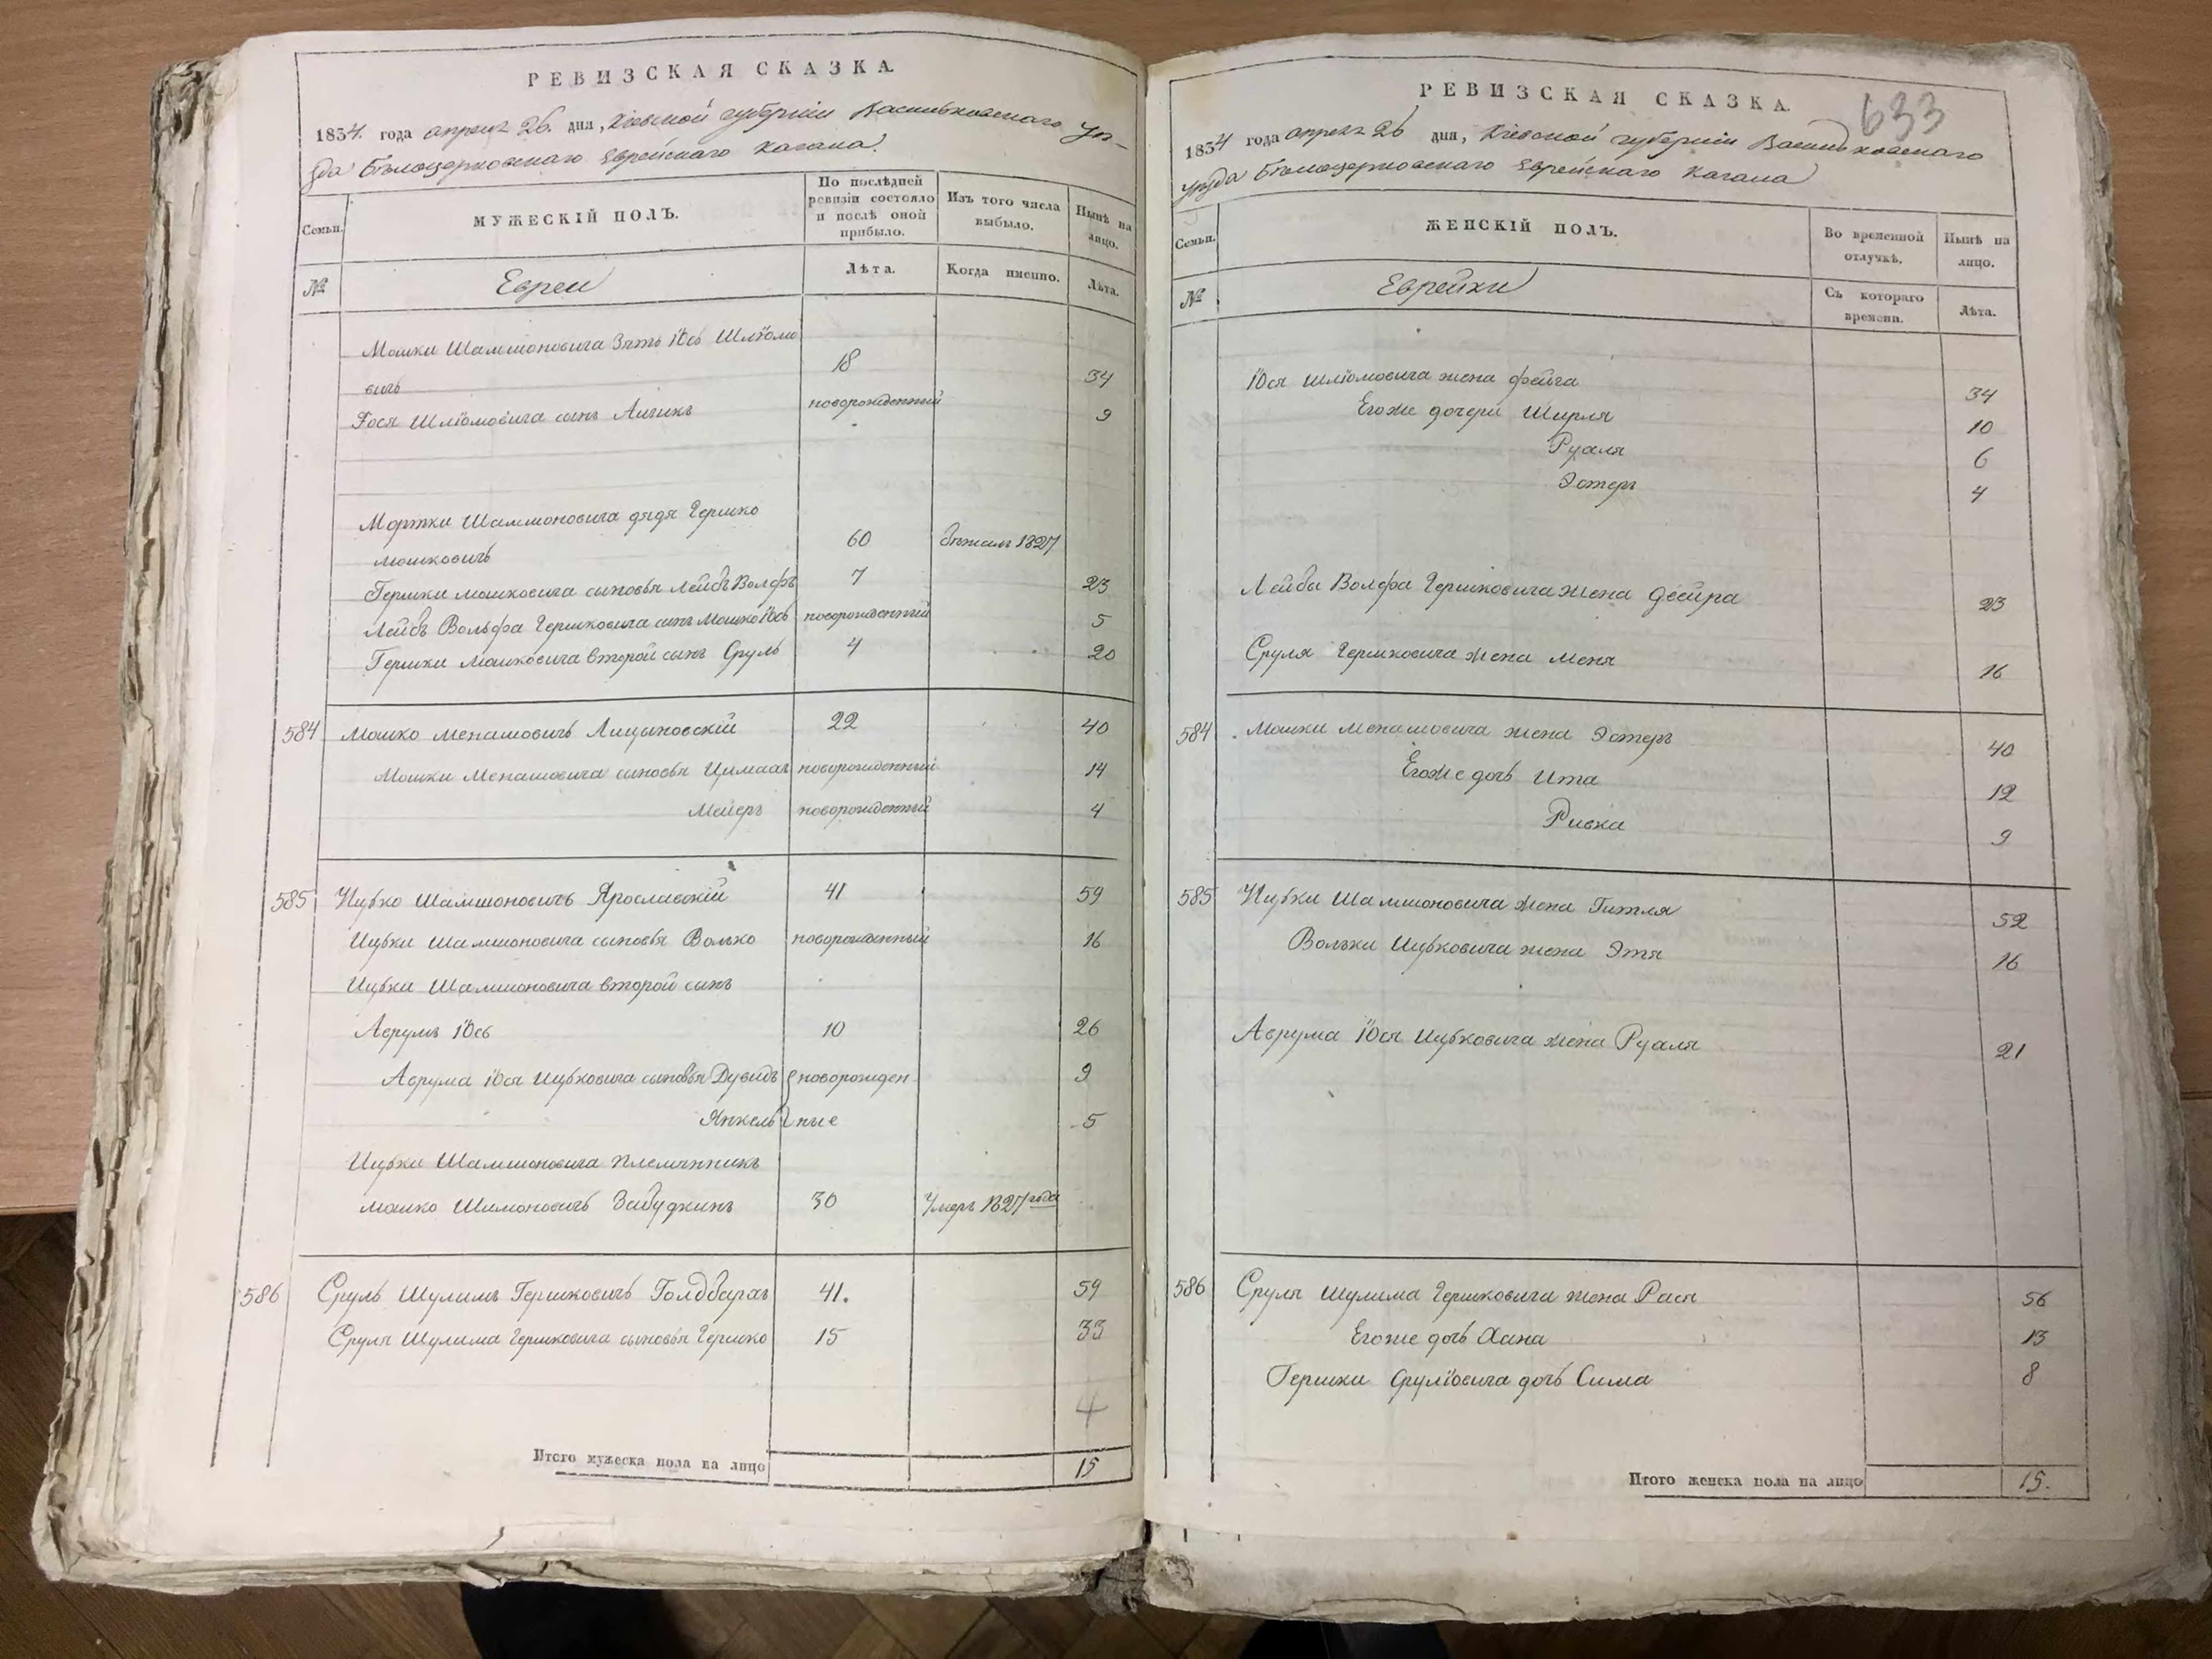 РЕВИЗСКАЯ СКАЗКА.
1834. года апреля 26. дня, Кіевской губерніи Васильковскаго уѣ-
зда Бѣлоцерковскаго Еврейскаго Кагала.
Семьи.
МУЖЕСКІЙ ПОЛЪ.
По послѣдней ревизіи состояло и послѣ оной прибыло.
Изъ того числа выбыло.
Нынѣ на лицо.
№
Евреи
Лѣта.
Когда именно.
Лѣта.
Мошки Шамшоновича Зять Іось Шліомо
вичь 18 34
Іося Шліомовича сынъ Аизикъ новорожденный 9
Мортки Шамшоновича дядя Гершко
Мошковичь 60 бѣжалъ 1827
Гершки Мошковича сыновья Лейбъ Волфъ 7 23
Лейбъ Вольфа Гершковича сынъ Мошко Іось новорожденный 5
Гершки Мошковича второй сынъ Сруль 4 20
584 Мошко Менашовичь Лицыновскій 22 40
Мошки Менашовича сыновья новорожденный 14
Мейеръ новорожденный 4
585 Ицько Шамшоновичь Ярославскій 41 59
Ицьки Шамшоновича сыновья Волько новорожденный 16
Ицьки Шамшоновича второй сынъ
Аврумъ Іось 10 26
Аврума Іося Ицьковича сыновья Дувидъ новорожден 9
Янкель ные 5
Ицьки Шамшоновича племянникъ
Мошко Шимоновичь 30 Умеръ 1827 года
586 Сруль Шулимъ Гершковичь Голдбаргъ 41. 59
Сруля Шулима Гершковича сыновья Гершко 15 33
4
Итого мужеска пола на лицо 15
РЕВИЗСКАЯ СКАЗКА.
633
1834 года апреля 26 дня, Кіевской губерніи Васильковскаго
уѣзда Бѣлоцерковскаго Еврейскаго Кагала
Семьи.
ЖЕНСКІЙ ПОЛЪ.
Во временной отлучкѣ.
Нынѣ на лицо.
№
Еврейки
Съ котораго времени.
Лѣта.
Іося Шліомовича жена Фейга 34
Егоже дочери Ширля 10
Рухля 6
Эстеръ 4
Лейбы Волфа Гершковича жена Двейра 23
Сруля Гершковича жена Меня 16
584 Мошки Менашовича жена Эстеръ 40
Егоже дочь Ита 12
Ривка 9
585 Ицьки Шамшоновича жена Гитля 52
Вольки Ицьковича жена Этя 16
Аврума Іося Ицьковича жена Рухля 21
586 Сруля Шулима Гершковича жена Рася 56
Егоже дочь Хана 13
Гершки Срулiовича дочь Сима 8
Итого женска пола на лицо 15.